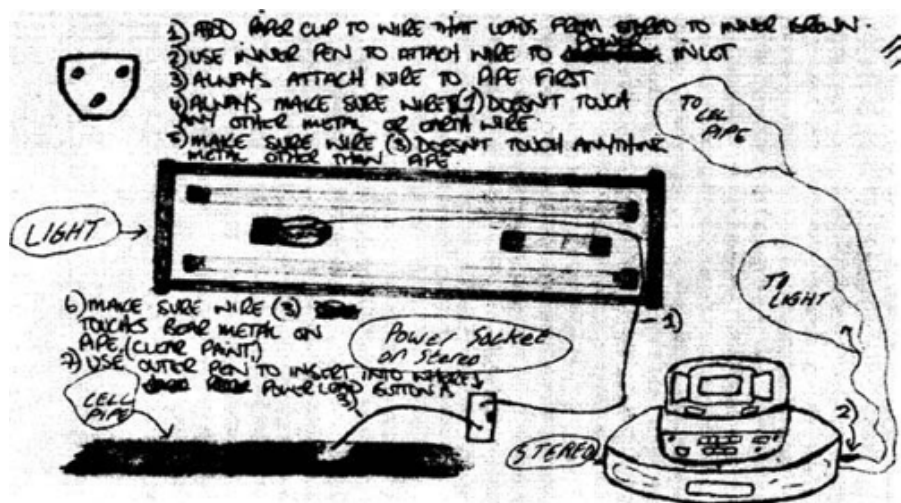 1) ADD PAPER CLIP TO WIRE THAT LEADS FROM STEREO TO INNER
2) USE INNER PEN TO ATTACH WIRE TO POWER INLET
3) ALWAYS ATTACH WIRE TO PIPE FIRST
4) ALWAYS MAKE SURE WIRE (1) DOESN'T TOUCH
ANY OTHER METAL OR EARTH WIRE
5) MAKE SURE WIRE (3) DOESN'T TOUCH ANYTHING
METAL OTHER THAN PIPE
TO
CELL
PIPE
LIGHT
TO
LIGHT
6) MAKE SURE WIRE (3)
TOUCHES BEAR METAL ON
PIPE, (CLEAR PAINT,)
1)
POWER SOCKET
ON STEREO
7) USE OUTER PEN TO INSERT INTO WHERE
POWER LOAD BUTTON IS
3)
CELL
PIPE
2)
STEREO